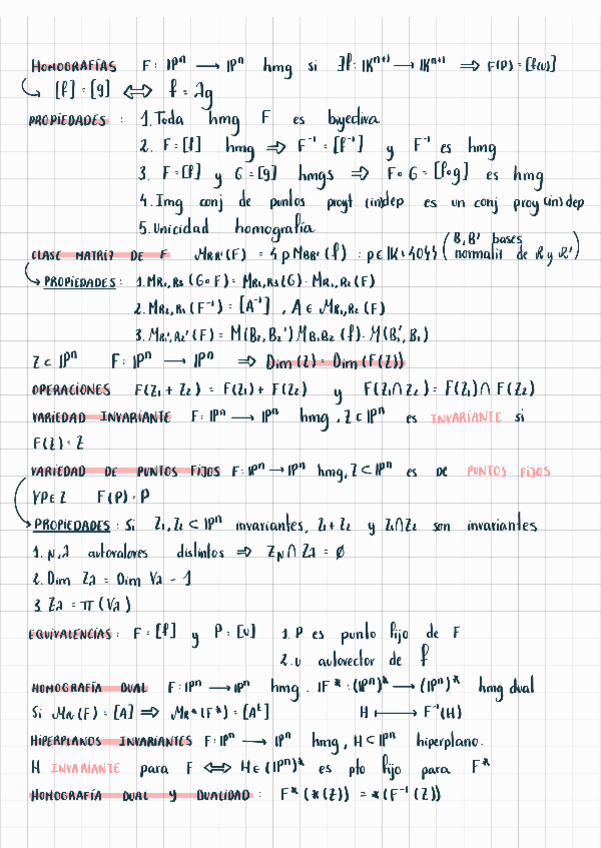 HOMOGRAFÍAS F: ℙⁿ → ℙⁿ hmg si ∃f: 𝕂ⁿ⁺¹ → 𝕂ⁿ⁺¹ ⇒ F(P) = [f(u)]
↳ [f] = [g] ⇔ f = λg
PROPIEDADES : 1. Toda hmg F es biyectiva
2. F = [f] hmg ⇒ F⁻¹ = [f⁻¹] y F⁻¹ es hmg
3. F = [f] y G = [g] hmgs ⇒ F∘G = [f∘g] es hmg
4. Img conj de puntos proyt (in)dep es un conj proy (in)dep
5. Unicidad homografía
CLASE MATRIZ DE F M_RR'(F) = {ρ M_BB'(f) : ρ ∈ 𝕂∖{0}} (B, B' bases normaliz de R y R')
↳ PROPIEDADES : 1. M_R1,R3(G∘F) = M_R2,R3(G) · M_R1,R2(F)
2. M_R2,R1(F⁻¹) = [A⁻¹] , A ∈ M_R1,R2(F)
3. M_R1',R2'(F) = M(B2, B2') M_B1B2(f) · M(B1', B1)
Z ⊂ ℙⁿ F: ℙⁿ → ℙⁿ ⇒ Dim(Z) = Dim(F(Z))
OPERACIONES F(Z₁ + Z₂) = F(Z₁) + F(Z₂) y F(Z₁ ∩ Z₂) = F(Z₁) ∩ F(Z₂)
VARIEDAD INVARIANTE F: ℙⁿ → ℙⁿ hmg, Z ⊂ ℙⁿ es INVARIANTE si
F(Z) = Z
VARIEDAD DE PUNTOS FIJOS F: ℙⁿ → ℙⁿ hmg, Z ⊂ ℙⁿ es DE PUNTOS FIJOS
∀P ∈ Z F(P) = P
↳ PROPIEDADES : Si Z₁, Z₂ ⊂ ℙⁿ invariantes, Z₁ + Z₂ y Z₁ ∩ Z₂ son invariantes
1. μ, λ autovalores distintos ⇒ Z_μ ∩ Z_λ = ∅
2. Dim Z_λ = Dim V_λ - 1
3. Z_λ = π(V_λ)
EQUIVALENCIAS : F = [f] y P = [u] 1. P es punto fijo de F
2. u autovector de f
HOMOGRAFÍA DUAL F: ℙⁿ → ℙⁿ hmg. F* : (ℙⁿ)* → (ℙⁿ)* hmg dual
Si M_R(F) = [A] ⇒ M_R*(F*) = [Aᵗ] H ⟼ F⁻¹(H)
HIPERPLANOS INVARIANTES F: ℙⁿ → ℙⁿ hmg, H ⊂ ℙⁿ hiperplano.
H INVARIANTE para F ⇔ H ∈ (ℙⁿ)* es pto fijo para F*
HOMOGRAFÍA DUAL Y DUALIDAD : F*(*(Z)) = *(F⁻¹(Z))